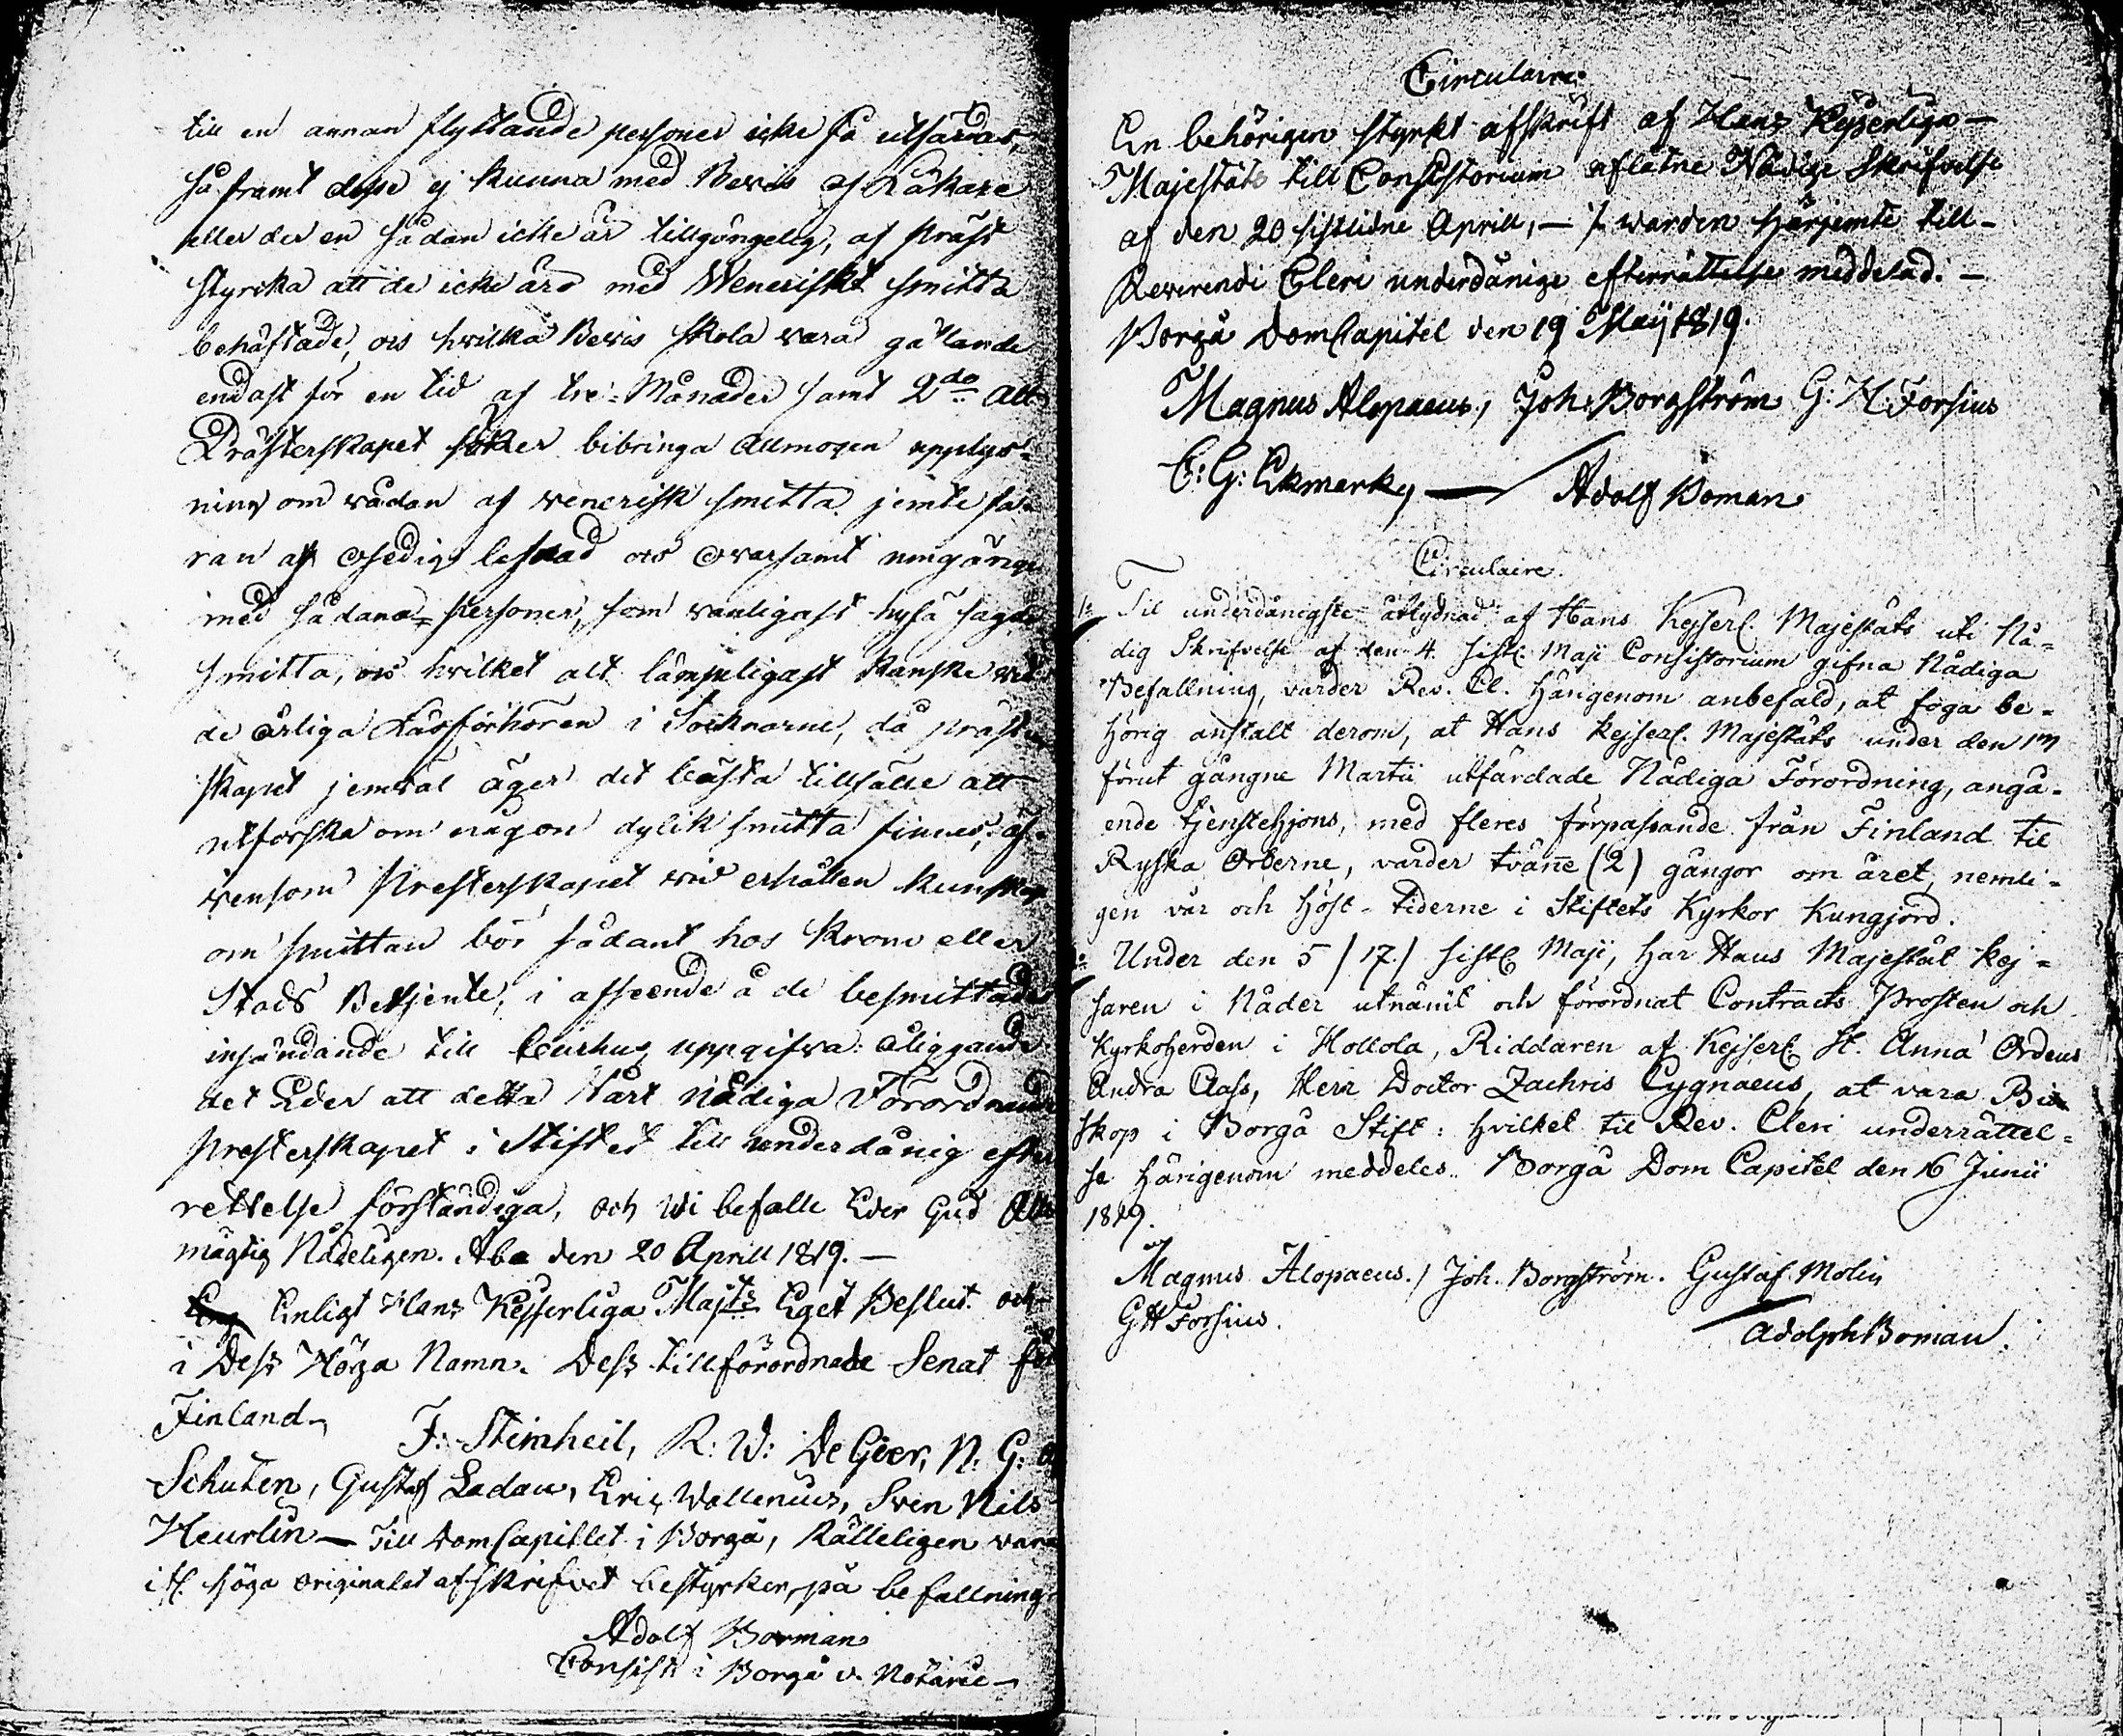 till en annan flyttande personer icke få utfärdas,
så framt desse ej kunna med Bevis af Läkare
eller der en sådan icke är tillgängelig, af präst
styrcka att de icke äro med Wenerisk smitta
behäftade, och hvilka Bevis skola vara gällande
endast för en tid af tre Månader samt 2do att
Prästerskapet söker bibringa Allmogen upplys=
ning om vådan af venerisk smitta jemte fa=
ran af osedig lefnad och ovarsamt umgänge
med sådana personer, som vanligast hysa sagde
smitta, och hvilket alt lämpeligast kan ske vid
de årliga Läsförhören i Socknarne, då präster
skapet jemväl äger det bästa tillfälle att
utforska om någon dylik smitta finnes, äf=
vensom Presterskapet vid erhållen kunskap
om smittan bör sådant hos Krono eller
Stads Betjente, i afseende å de besmittades
insändande till Curhus uppgifva: Åliggande
det Eder att detta Vårt Nådiga Förordnande
Presterskapet i Stiftet till underdånig efter
rettelse förständiga, och Wi befalle Eder Gud All
mägtig Nådeligen. Åbo den 20 Aprill 1819. —
Enligt Hans Kejserliga Majts Eget Beslut och
i Dess Höga Namn. Dess tillförordnade Senat för
Finland
F: Steinheil, R: W: De Geer, N: G: af
Schulten, Gustaf Ladau, Eric Wallenius, Sven Nils
Heurlin — Till DomCapitlet i Borgå, Rätteligen vara
ifr. höga originalet afskrifvet bestyrker, på befallning
Adolf Boman
Consist: i Borgå v. Notarie —
Circulaire.
En behörigen styrkt afskrift af Hans Kejserliga —
Majestäts till Consistorium aflåtne Nådige Skrifvelse
af den 20 sistlidne Aprill, — varder härjemte till-
Reverendi Cleri underdånige efterrättelse meddelad. —
Borgå DomCapitel den 19 Maji 1819.
Magnus Alopaeus, Joh: Borgström G: H. Forsius
C: G: Ekmark, — Adolf Boman
Circulaire.
1o Til underdånigste åtlydnad af Hans Kejserl. Majestäts uti Nå=
dig Skrifvelse af den 4. sistl. Maji Consistorium gifna Nådiga
Befallning, varder Rev. Cl. härigenom anbefald, at foga be=
hörig anstalt derom, at Hans Kejserl. Majestäts under den 1m
förut gångne Martii utfärdade Nådiga Förordning, angå=
ende tjenstehjons, med fleres förpassande från Finland til
Ryska Orterne, varder tvänne (2) gångor om året, nemli=
gen vår och höst-tiderne i Stiftets Kyrkor Kungjord.
2o Under den 5/17./ sistl. Maji, har Hans Majestät Kej=
saren i Nåder utnämt och förordnat Contracts Prosten och
Kyrkoherden i Hollola, Riddaren af Kejserl. St. Anna Ordens
Andra Class, Herr Doctor Zachris Cygnaeus, at vara Bi
skop i Borgå Stift: hvilket til Rev. Cleri underrättel=
se härigenom meddeles. Borgå Dom Capitel den 16 Junii
1819.
Magnus Alopaeus./ Joh. Borgström. Gustaf Molin
GH Forsius.
Adolph Boman.